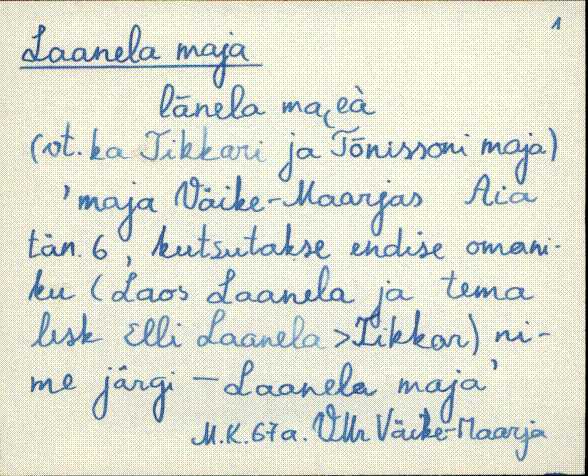 1
Laanela maja
lānela ma(eà
(vt. ka Tikkari ja Tõnissoni maja)
'maja Väike-Maarjas Aia
tän. 6, kutsutakse endise omani-
ku (Laos Laanela ja tema
lesk Elli Laanela > Tikkar) ni-
me järgi – Laanela maja'
M.K. 67a. VMr Väike-Maarja